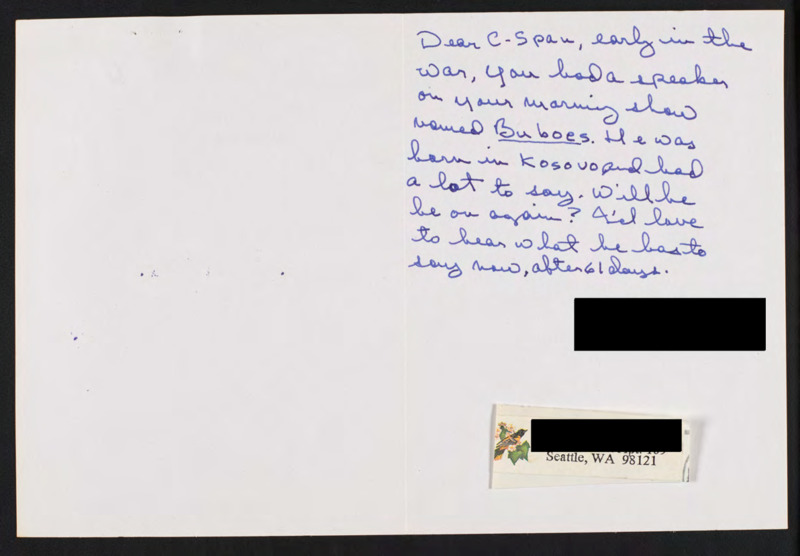 Dear C-Span, early in the
war, you had a speaker
on your morning show
named Buboes. He was
born in Kosovo and had
a lot to say. Will he
be on again? I'd love
to hear what he has to
say now, after 61 days.
Seattle, WA 98121